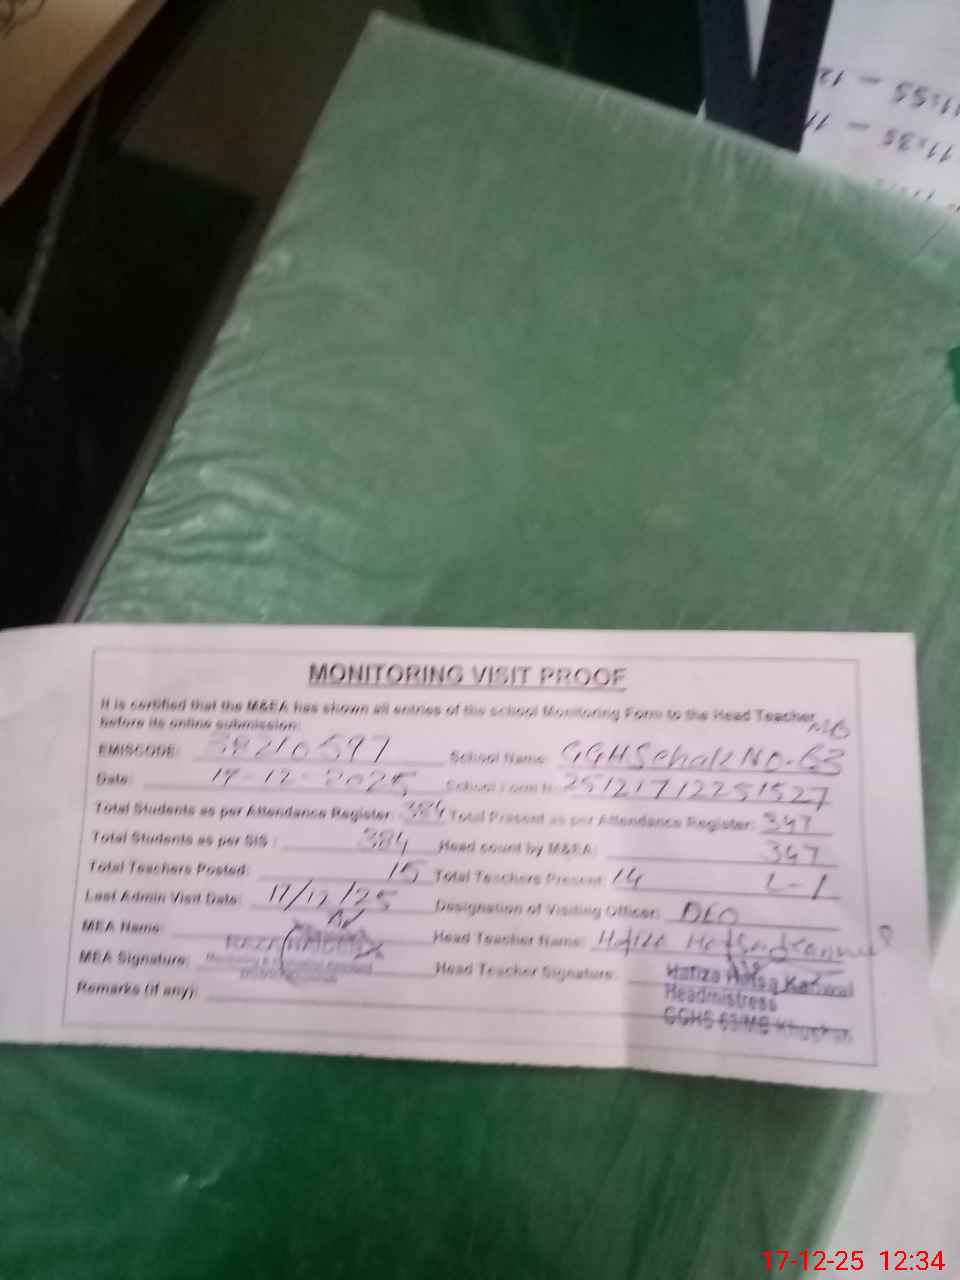 11:55 - 12
11:35 - 11
MONITORING VISIT PROOF
It is certified that the M&EA has shown all entries of the school Monitoring Form to the Head Teacher
before its online submission:
MB
EMISCODE: 38210597 School Name: GGHSchool No-63
Date: 17-12-2025 School Form N: 25121712251527
Total Students as per Attendance Register: 384 Total Present as per Attendance Register: 347
Total Students as per SIS: 384 Head count by M&EA: 347
Total Teachers Posted: 15 Total Teachers Present: 14 L-1
Last Admin Visit Date: 17/12/25 Designation of Visiting Officer: DEO
MEA Name: Head Teacher Name: Hafiza
MEA Signature: Head Teacher Signature:
Hafiza Hafsa Kanwal
Headmistress
GGHS 63/MB Khushab
Remarks (if any):
17-12-25 12:34